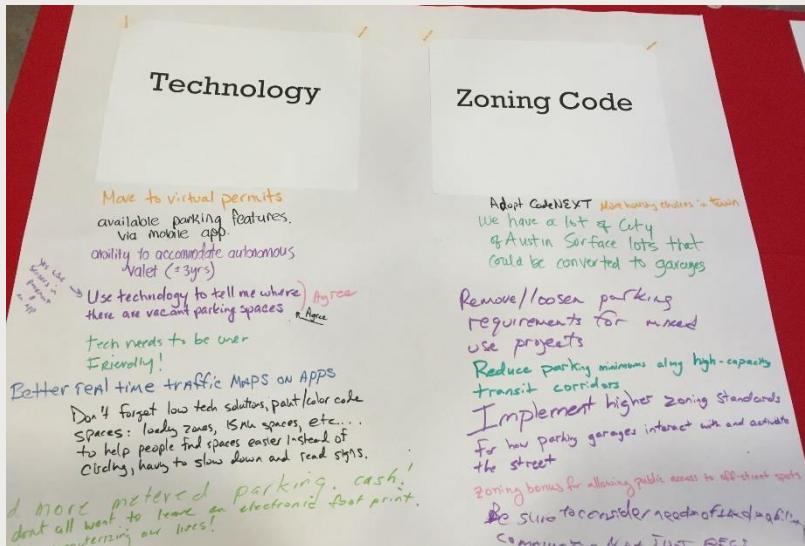 Technology
Move to virtual permits
available parking features.
via mobile app.
ability to accomodate autonomous
valet (±3yrs)
yes use
sensors in
an app
Use technology to tell me where
there are vacant parking spaces
Agree
Agree
tech needs to be user
Friendly!
Better real time traffic MAPS ON APPS
Don't forget low tech solutions, paint/color code
spaces: loading zones, 15 min spaces, etc...
to help people find spaces easier instead of
circling, having to slow down and read signs.
more metered parking. cash!
dont all want to leave an electronic foot print.
our lives!
Zoning Code
Adopt CodeNEXT More housing choices in town
We have a lot of City
of Austin Surface lots that
could be converted to garages
Remove/loosen parking
requirements for mixed
use projects
Reduce parking minimums along high-capacity
transit corridors
Implement higher zoning standards
for how parking garages interact with and activate
the street
Zoning bonus for allowing public access to off-street spots
Be sure to consider needs of
NOT JUST